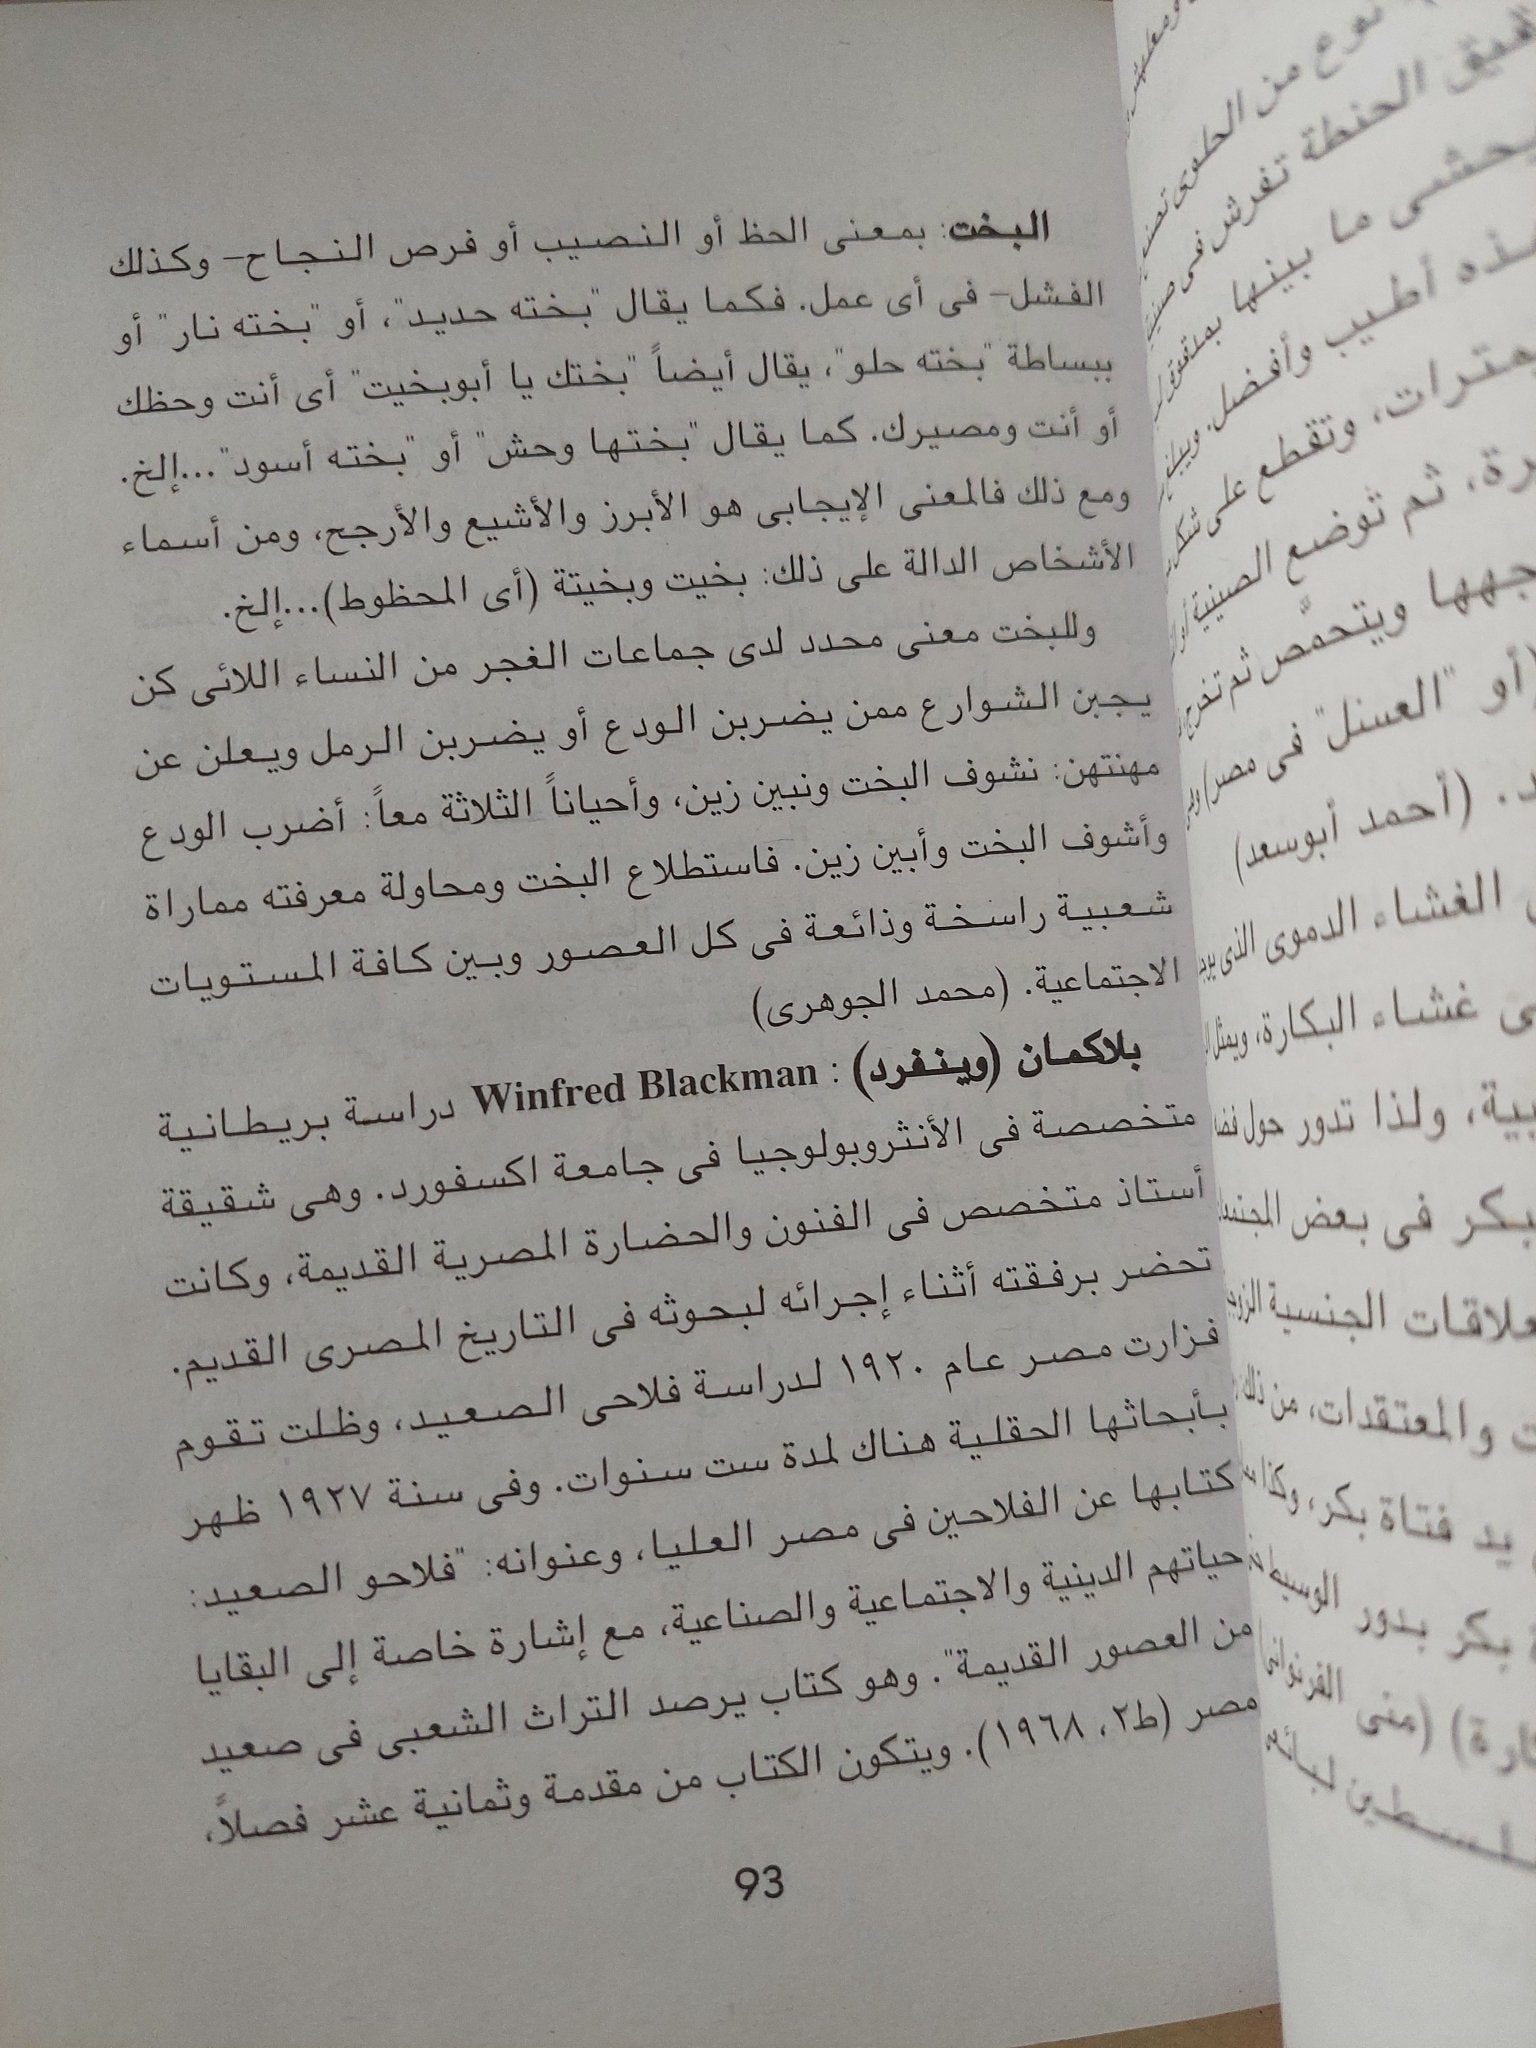 البخت: بمعنى الحظ أو النصيب أو فرص النجاح– وكذلك
الفشل– فى أى عمل. فكما يقال "بخته حديد"، أو "بخته نار" أو
ببساطة "بخته حلو"، يقال أيضاً "بختك يا أبوبخيت" أى أنت وحظك
أو أنت ومصيرك. كما يقال "بختها وحش" أو "بخته أسود"...إلخ.
ومع ذلك فالمعنى الإيجابى هو الأبرز والأشيع والأرجح، ومن أسماء
الأشخاص الدالة على ذلك: بخيت وبخيتة (أى المحظوط)...إلخ.
وللبخت معنى محدد لدى جماعات الغجر من النساء اللائى كن
يجبن الشوارع ممن يضربن الودع أو يضربن الرمل ويعلن عن
مهنتهن: نشوف البخت ونبين زين، وأحياناً الثلاثة معاً: أضرب الودع
وأشوف البخت وأبين زين. فاستطلاع البخت ومحاولة معرفته مماراة
شعبية راسخة وذائعة فى كل العصور وبين كافة المستويات
الاجتماعية. (محمد الجوهرى)
بلاكمان (وينفرد) : Winfred Blackman دراسة بريطانية
متخصصة فى الأنثروبولوجيا فى جامعة اكسفورد. وهى شقيقة
أستاذ متخصص فى الفنون والحضارة المصرية القديمة، وكانت
تحضر برفقته أثناء إجرائه لبحوثه فى التاريخ المصرى القديم.
فزارت مصر عام ١٩٢٠ لدراسة فلاحى الصعيد، وظلت تقوم
بأبحاثها الحقلية هناك لمدة ست سنوات. وفى سنة ١٩٢٧ ظهر
كتابها عن الفلاحين فى مصر العليا، وعنوانه: "فلاحو الصعيد:
حياتهم الدينية والاجتماعية والصناعية، مع إشارة خاصة إلى البقايا
من العصور القديمة". وهو كتاب يرصد التراث الشعبى فى صعيد
مصر (ط٢، ١٩٦٨). ويتكون الكتاب من مقدمة وثمانية عشر فصلاً،
93
نوع من الحلوى
الحنطة تفرش فى صينية
ما بينها
أطيب وأفضل.
وتقطع على شكل
ثم توضع الصينية
ويتحمّص ثم تخرج
أو "العسل" فى مصر)
(أحمد أبوسعد)
الغشاء الدموى الذى
غشاء البكارة، ويمثل
ولذا تدور حول
بكر فى بعض
الجنسية
والمعتقدات، من ذلك
يد فتاة بكر، وكذا
بكر بدور
(منى الفرنوانى)